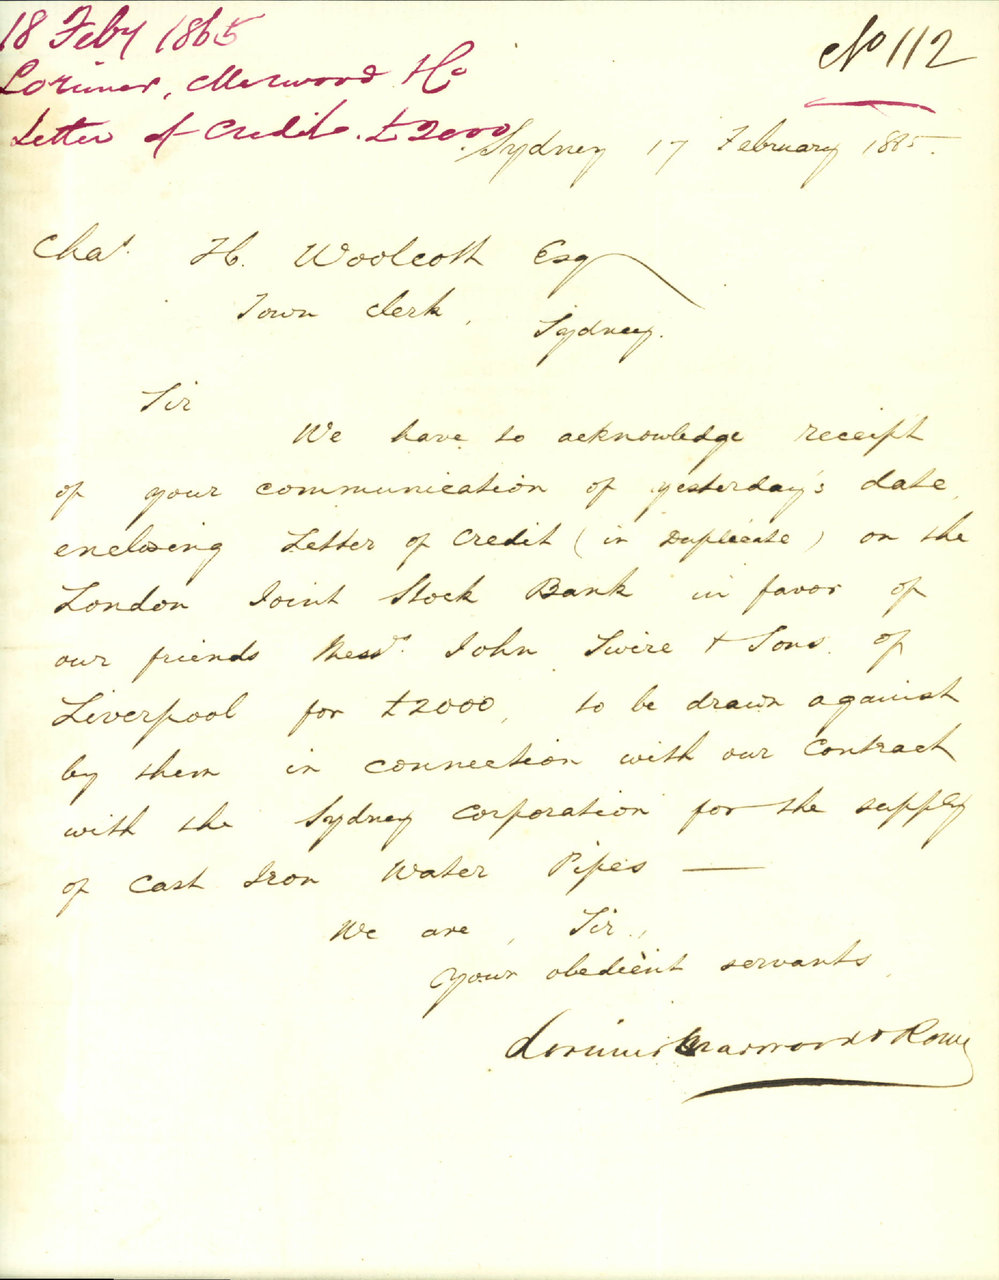 18 Feby 1865
Lorimer, Marwood & Co
Letter of Credit. £2000
No 112
Sydney 17 February 1865.
Chas. H. Woolcott Esq
Town Clerk,
Sydney.
Sir
We have to acknowledge receipt
of your communication of yesterday's date,
enclosing Letter of Credit (in Duplicate) on the
London Joint Stock Bank in favor of
our friends Messrs. John Swire & Sons. of
Liverpool for £2000, to be drawn against
by them in connection with our Contract
with the Sydney Corporation for the supply
of Cast Iron Water Pipes —
We are, Sir,
Your obedient servants,
Lorimer Marwood & Rome